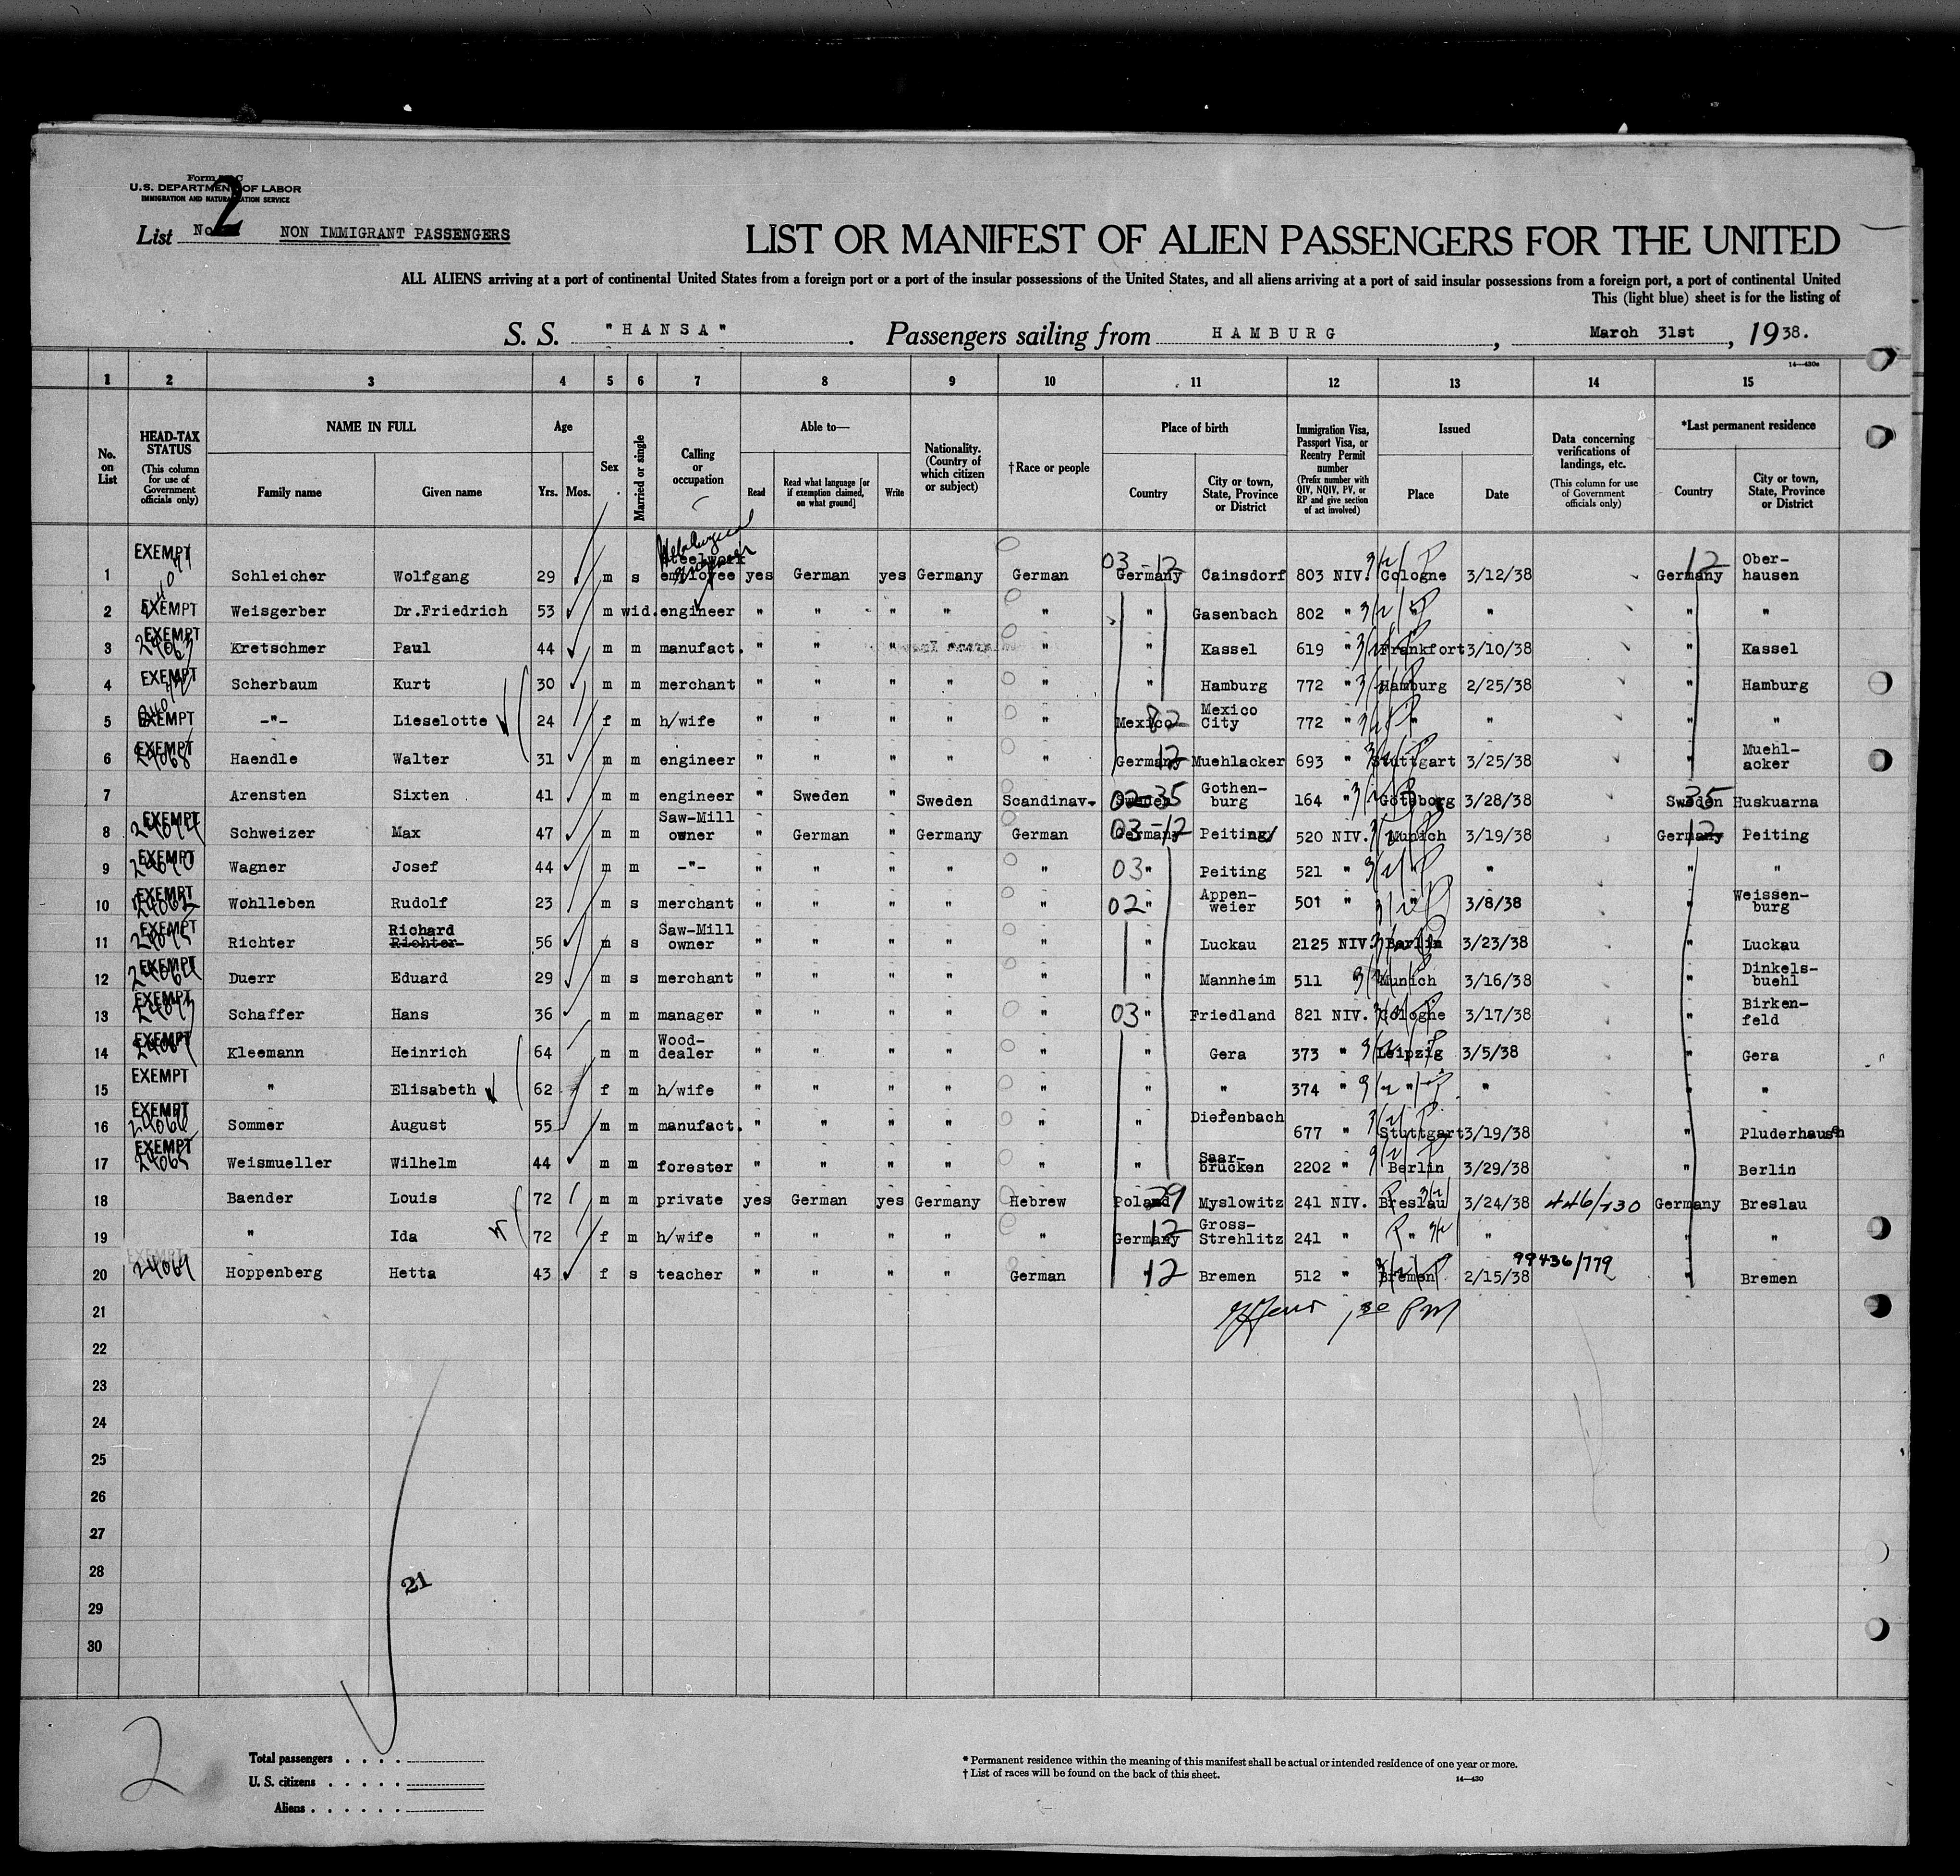 U.S. DEPARTMENT OF LABOR
IMMIGRATION AND NATURALIZATION SERVICE
2
List No. NON IMMIGRANT PASSENGERS
LIST OR MANIFEST OF ALIEN PASSENGERS FOR THE UNITED
ALL ALIENS arriving at a port of continental United States from a foreign port or a port of the insular possessions of the United States, and all aliens arriving at a port of said insular possessions from a foreign port, a port of continental United
This (light blue) sheet is for the listing of
S. S. "HANSA". Passengers sailing from HAMBURG, March 31st, 1938.
14—430e
1 2 3 4 5 6 7 8 9 10 11 12 13 14 15
No. on List
HEAD-TAX STATUS (This column for use of Government officials only)
NAME IN FULL Family name Given name
Age Yrs. Mos.
Sex
Married or single
Calling or occupation
Able to— Read Read what language [or if exemption claimed, on what ground] Write
Nationality. (Country of which citizen or subject)
†Race or people
Place of birth Country City or town, State, Province or District
Immigration Visa, Passport Visa, or Reentry Permit number (Prefix number with QIV, NQIV, PV, or RP and give section of act involved)
Issued Place Date
Data concerning verifications of landings, etc. (This column for use of Government officials only)
*Last permanent residence Country City or town, State, Province or District
1 EXEMPT Schleicher Wolfgang 29 m s Steelwork employee yes German yes Germany German 03-12 Germany Cainsdorf 803 NIV. Cologne 3/12/38 12 Germany Ober-hausen
2 EXEMPT Weisgerber Dr.Friedrich 53 m wid. engineer " " " " " " Gasenbach 802 " " " " "
3 EXEMPT 24063 Kretschmer Paul 44 m m manufact. " " " " " Kassel 619 " Frankfort 3/10/38 " Kassel
4 EXEMPT Scherbaum Kurt 30 m m merchant " " " " " " Hamburg 772 " Hamburg 2/25/38 " Hamburg
5 EXEMPT -"- Lieselotte 24 f m h/wife " " " " " Mexico 82 Mexico City 772 " " " " "
6 EXEMPT 24068 Haendle Walter 31 m m engineer " " " " " Germany 12 Muehlacker 693 " Stuttgart 3/25/38 " Muehl-acker
7 Arensten Sixten 41 m m engineer " Sweden " Sweden Scandinav- Sweden 02-35 Gothen-burg 164 " Göteborg 3/28/38 Sweden 35 Huskuarna
8 EXEMPT Schweizer Max 47 m m Saw-Mill owner " German " Germany German Germany 03-12 Peiting 520 NIV. Munich 3/19/38 Germany 12 Peiting
9 EXEMPT 24070 Wagner Josef 44 m m -"- " " " " " 03 " Peiting 521 " " " " "
10 EXEMPT Wohlleben Rudolf 23 m s merchant " " " " " 02 " Appen-weier 501 " " 3/8/38 " Weissen-burg
11 EXEMPT Richter Richard Richter 56 m s Saw-Mill owner " " " " " " Luckau 2125 NIV. Berlin 3/23/38 " Luckau
12 EXEMPT Duerr Eduard 29 m s merchant " " " " " " Mannheim 511 Munich 3/16/38 " Dinkels-buehl
13 EXEMPT 24073 Schaffer Hans 36 m m manager " " " " " 03 " Friedland 821 NIV. Cologne 3/17/38 " Birken-feld
14 EXEMPT Kleemann Heinrich 64 m m Wood-dealer " " " " " " Gera 373 " Leipzig 3/5/38 " Gera
15 EXEMPT " Elisabeth 62 f m h/wife " " " " " " " 374 " " " " "
16 EXEMPT 24066 Sommer August 55 m m manufact. " " " " " " Diefenbach 677 " Stuttgart 3/19/38 " Pluderhausen
17 EXEMPT 24065 Weismueller Wilhelm 44 m m forester " " " " " " Saar-brücken 2202 " Berlin 3/29/38 " Berlin
18 Baender Louis 72 m m private yes German yes Germany Hebrew Poland 29 Myslowitz 241 NIV. Breslau 3/24/38 446/130 Germany Breslau
19 " Ida 72 f m h/wife " " " " " Germany 12 Gross-Strehlitz 241 " " " " "
20 EXEMPT 24069 Hoppenberg Hetta 43 f s teacher " " " " German 12 Bremen 512 " Bremen 2/15/38 99436/779 " Bremen
21
22
23
24
25
26
27
28
29
30
21
2
Total passengers . . . .
U. S. citizens . . . . .
Aliens . . . . . .
* Permanent residence within the meaning of this manifest shall be actual or intended residence of one year or more.
† List of races will be found on the back of this sheet.
14—430